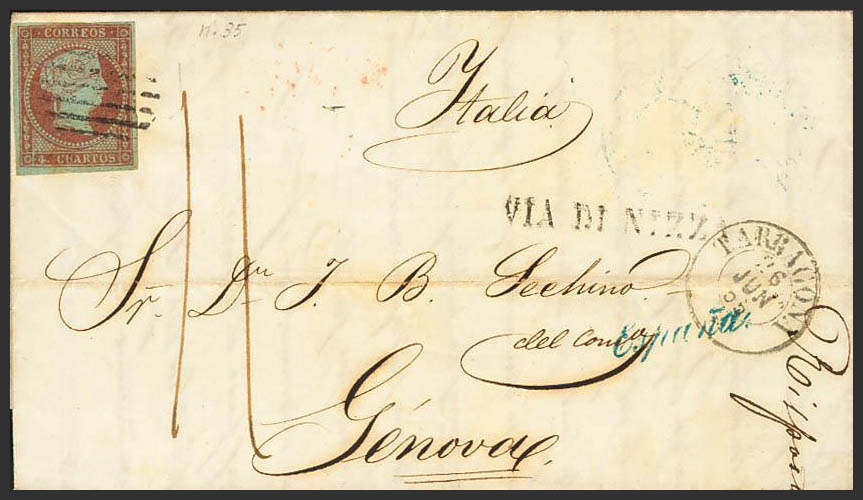 CORREOS
4 CUARTOS
n. 35
Italia
VIA DI NIZZA
TARRAGONA
JUN
Sr. Dn J. B. Sechino
del Comº
España.
Génova